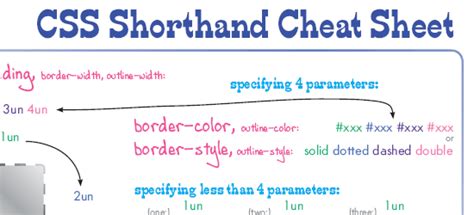 CSS Shorthand Cheat Sheet
ding, border-width, outline-width:
specifying 4 parameters:
3un 4un
border-color, outline-color: #xxx #xxx #xxx #xxx
or
1un
border-style, outline-style: solid dotted dashed double
2un
specifying less than 4 parameters:
1un 1un 1un
(one:) (two:) (three:)